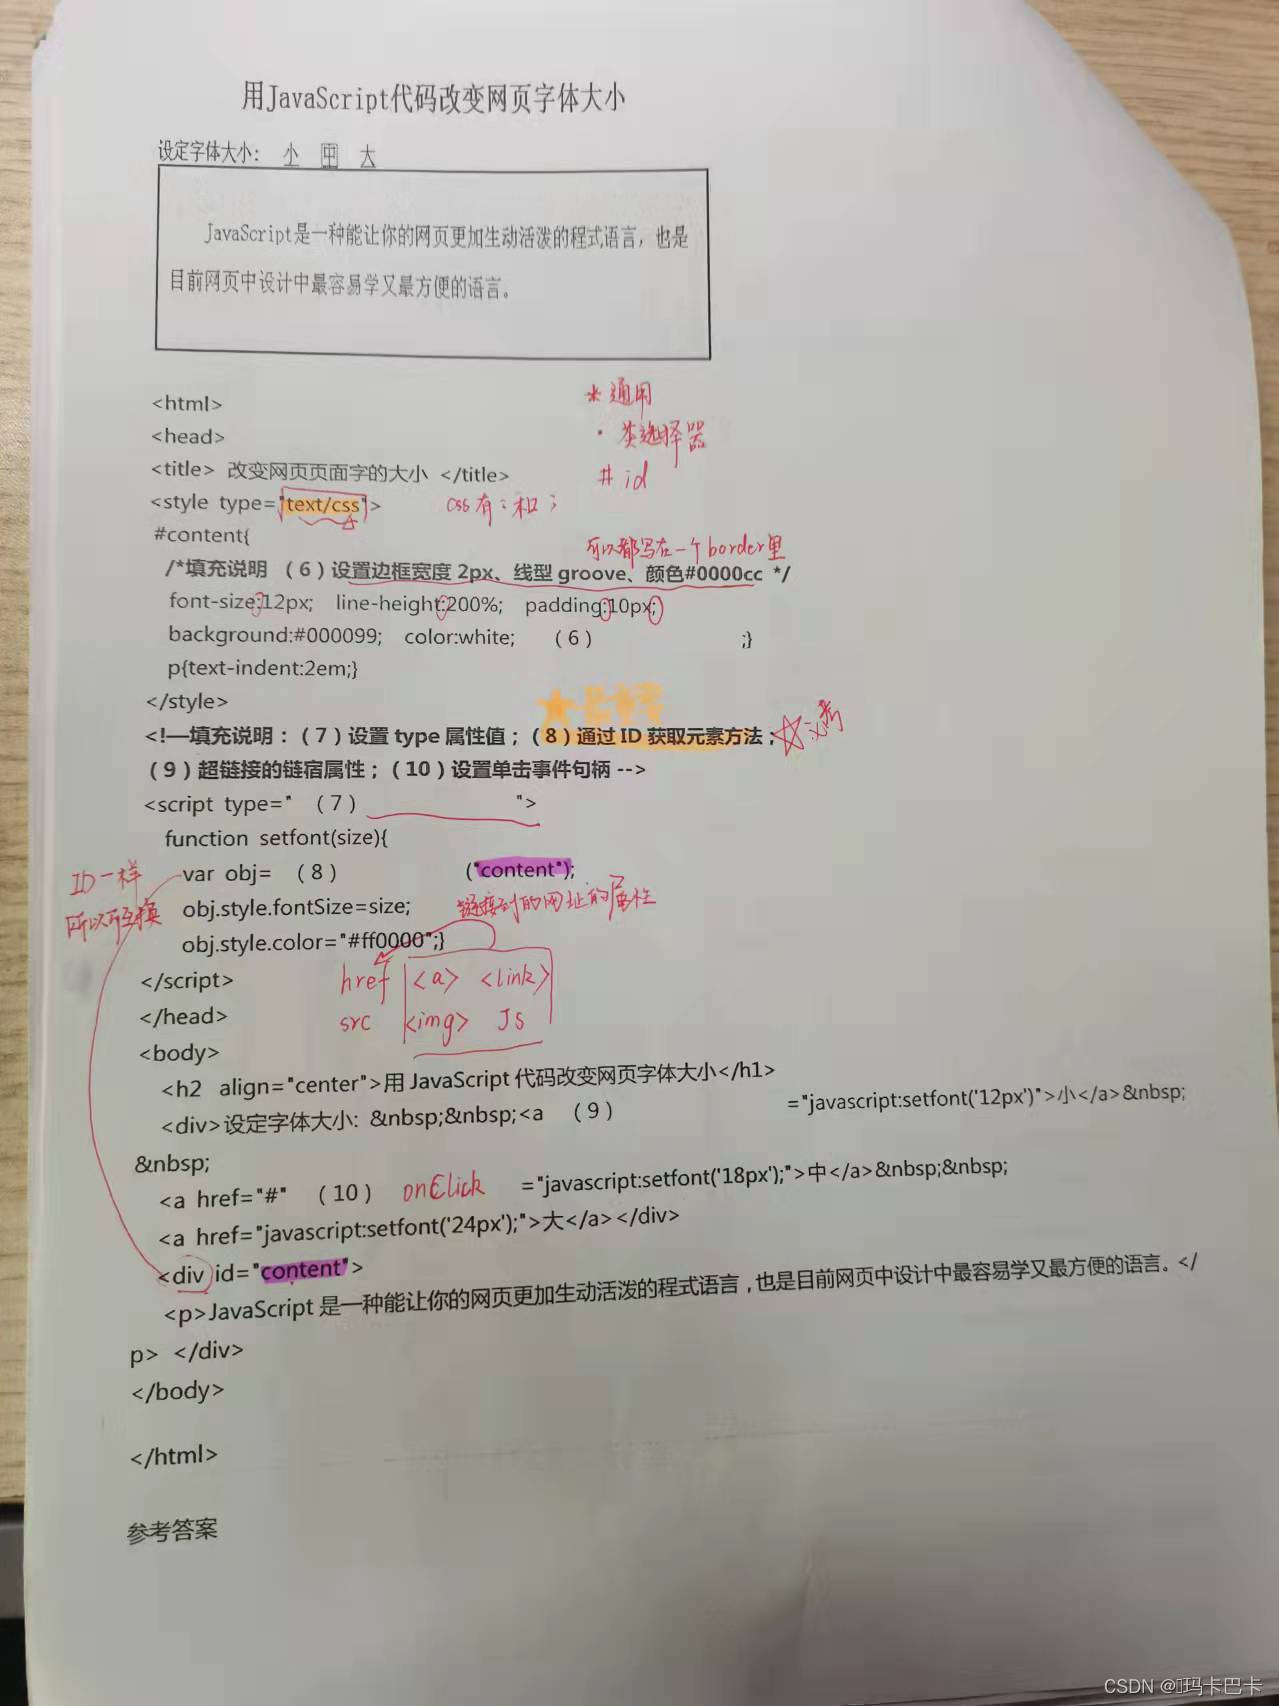 用JavaScript代码改变网页字体大小
设定字体大小： 小 中 大
JavaScript是一种能让你的网页更加生动活泼的程式语言，也是
目前网页中设计中最容易学又最方便的语言。
<html>
* 通用
<head>
· 类选择器
<title> 改变网页页面字的大小 </title>
# id
<style type="text/css">
css有 : 和 ;
#content{
可以都写在一个border里
/*填充说明 （6）设置边框宽度 2px、线型 groove、颜色#0000cc */
font-size:12px; line-height:200%; padding:10px;
background:#000099; color:white; （6） ;}
p{text-indent:2em;}
</style>
★最重要
<!—填充说明：（7）设置 type 属性值；（8）通过 ID 获取元素方法；
☆必考
（9）超链接的链宿属性；（10）设置单击事件句柄 -->
<script type=" （7） ">
function setfont(size){
ID一样
var obj= （8） ("content");
所以可互换
obj.style.fontSize=size;
链接到的网址的属性
obj.style.color="#ff0000";}
</script>
href <a> <link>
</head>
src <img> Js
<body>
<h2 align="center">用 JavaScript 代码改变网页字体大小</h1>
<div>设定字体大小: &nbsp;&nbsp;<a （9） ="javascript:setfont('12px')">小</a>&nbsp;
&nbsp;
<a href="#" （10） onClick ="javascript:setfont('18px');">中</a>&nbsp;&nbsp;
<a href="javascript:setfont('24px');">大</a></div>
<div id="content">
<p>JavaScript 是一种能让你的网页更加生动活泼的程式语言，也是目前网页中设计中最容易学又最方便的语言。</
p> </div>
</body>
</html>
参考答案
CSDN @玛卡巴卡